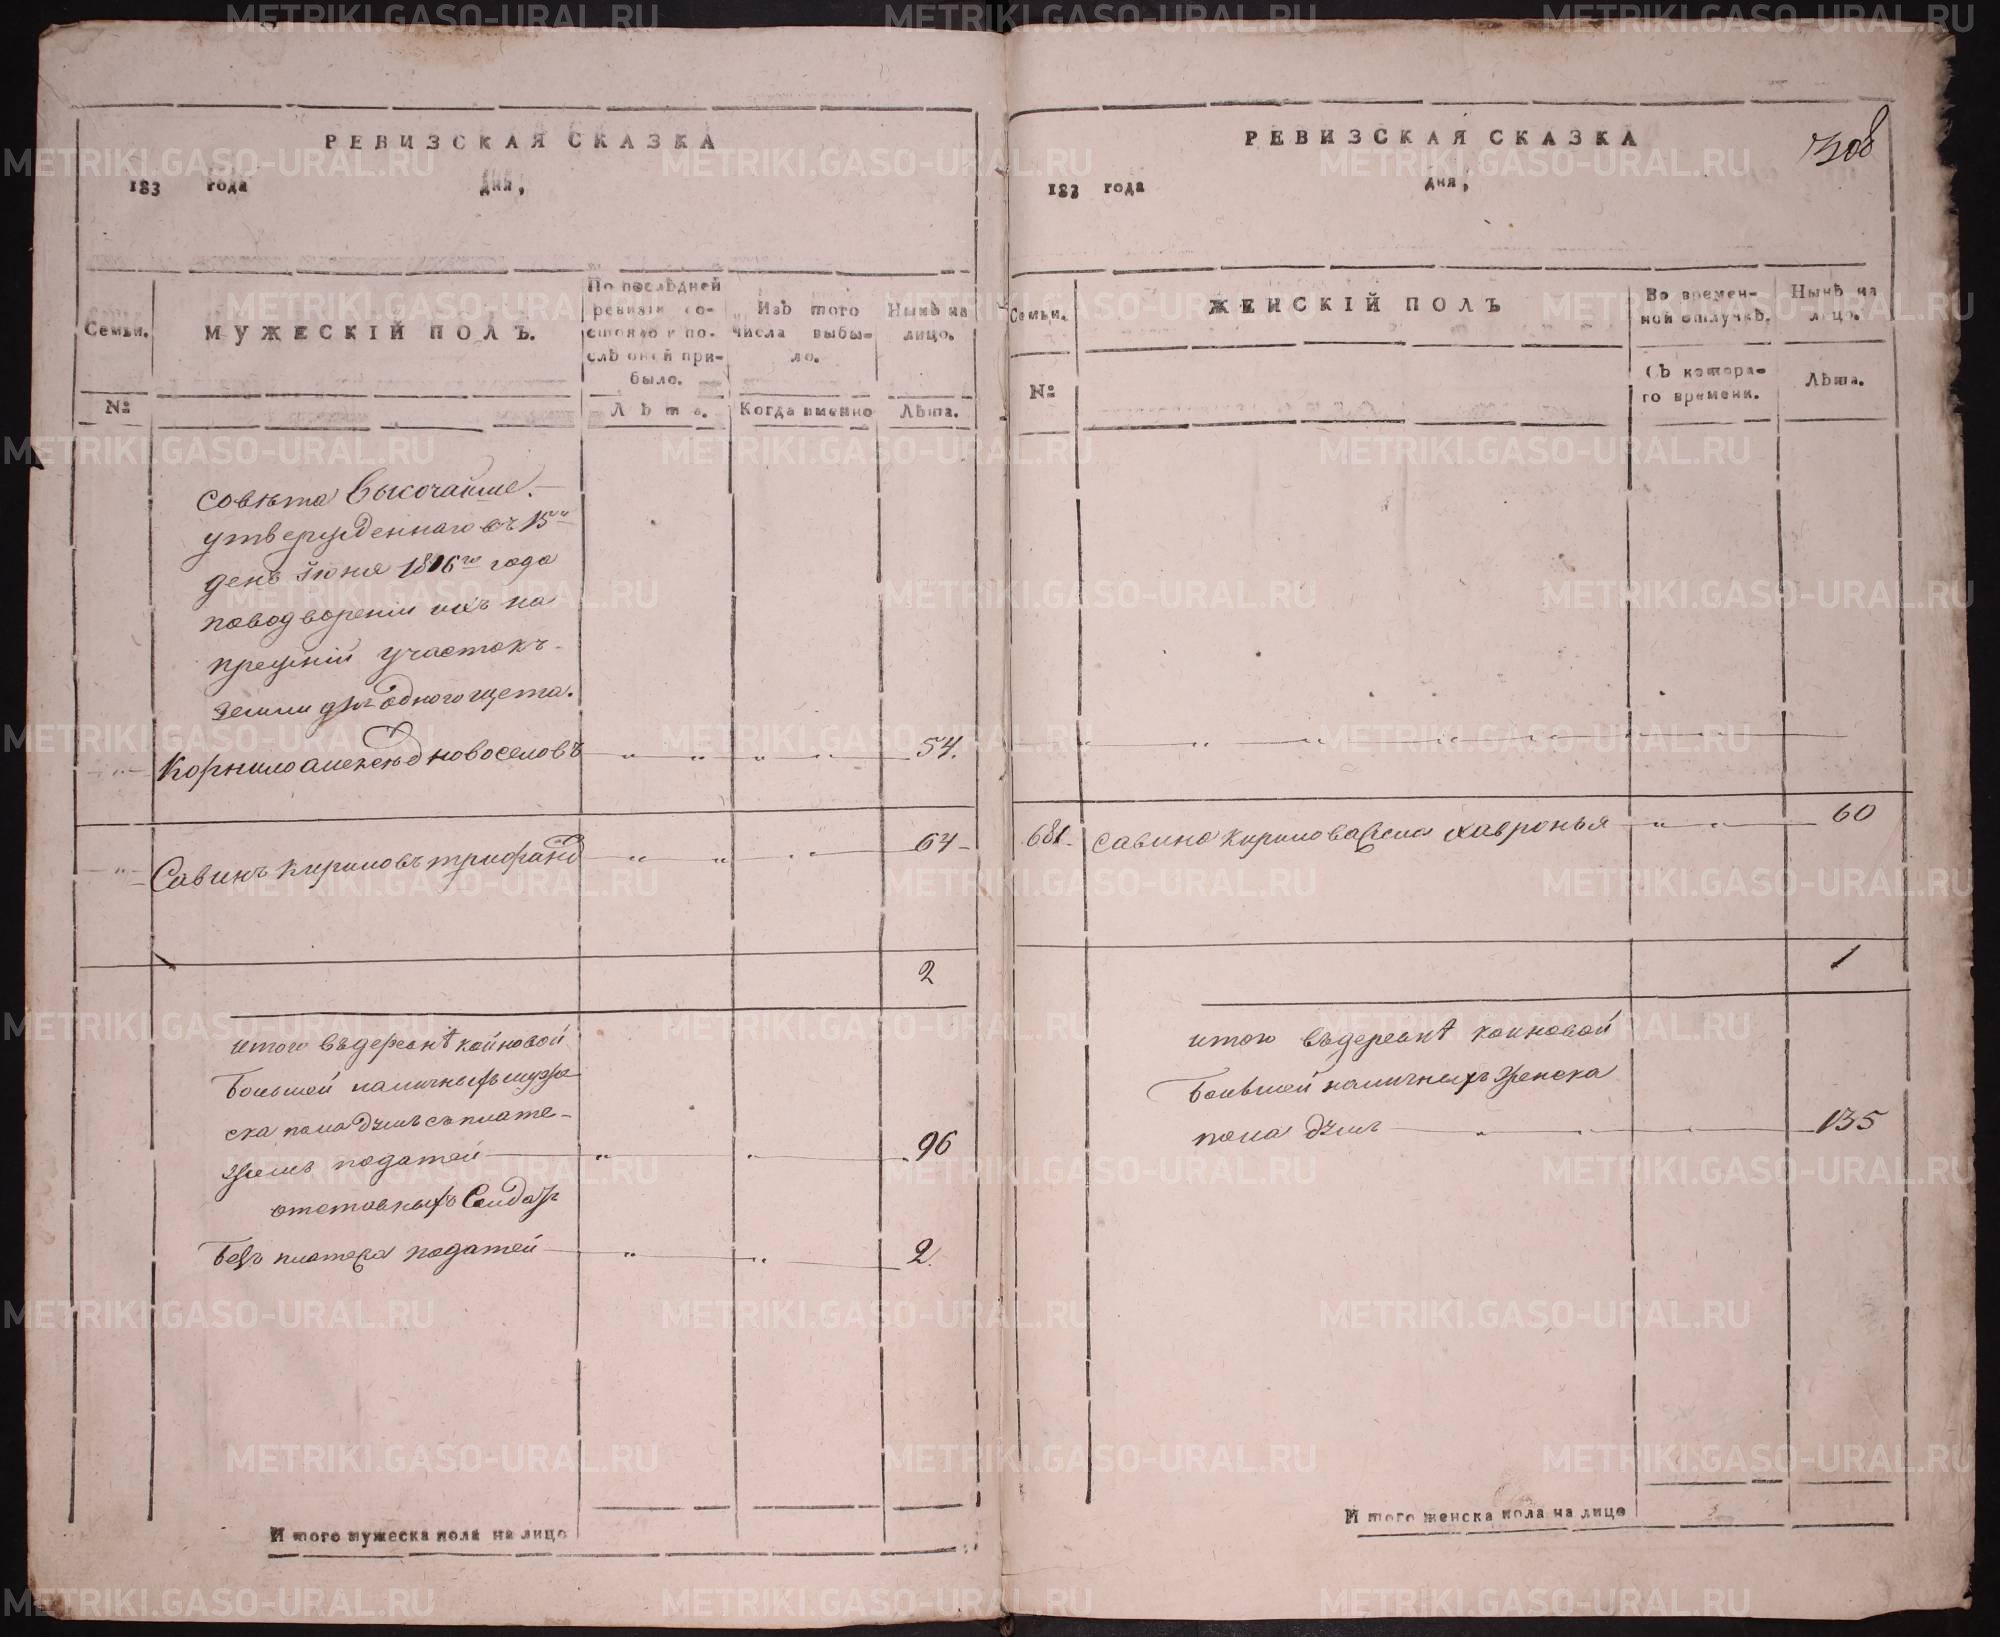 РЕВИЗСКАЯ СКАЗКА
183 года дня,
Семьи.
МУЖЕСКІЙ ПОЛЪ.
По послѣдней
ревизіи со-
стояло и по-
слѣ оной при-
было.
Изъ того
числа выбы-
ло.
Нынѣ на
лицо.
№
Лѣта.
Когда именно
Лѣта.
совѣта Высочайше
утвержденнаго въ 15й
день Іюня 1816го года
поводвореніи ихъ на
прежній участокъ
земли для одного щета.
Корнило Алексѣ новоселовъ 54.
Савинъ Кириловъ трифано 64
2
итого въдеревнѣ койновой
Большей наличныхъ муже
ска пола душъ съплате-
жемъ податей 96
отставныхъ Солдатъ
Безъ платежа податей 2.
Итого мужеска пола на лицо
РЕВИЗСКАЯ СКАЗКА
308
183 года дня,
Семьи.
ЖЕНСКІЙ ПОЛЪ
Во времен-
ной отлучкѣ.
Нынѣ на
лицо.
№
Съ котора-
го времени.
Лѣта.
681 Савина Кирилова жена хавронья 60
1
итого въдеревнѣ койновой
Большей наличныхъ женска
пола душъ 135
Итого женска пола на лицо
METRIKI.GASO-URAL.RU